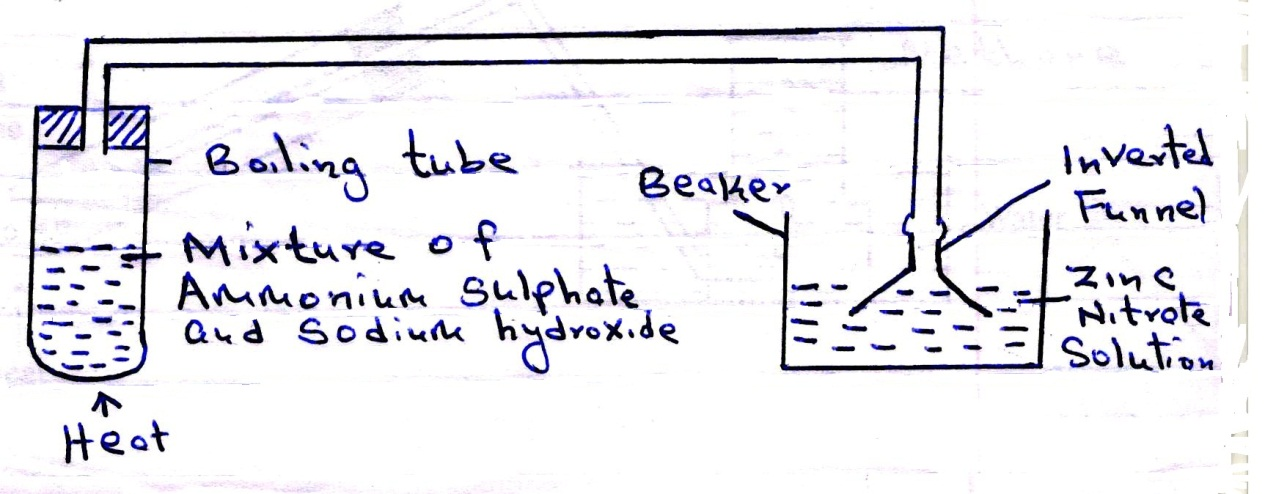 Boiling tube
Mixture of
Ammonium Sulphate
and Sodium hydroxide
Heat
Beaker
Inverted
Funnel
Zinc
Nitrate
Solution